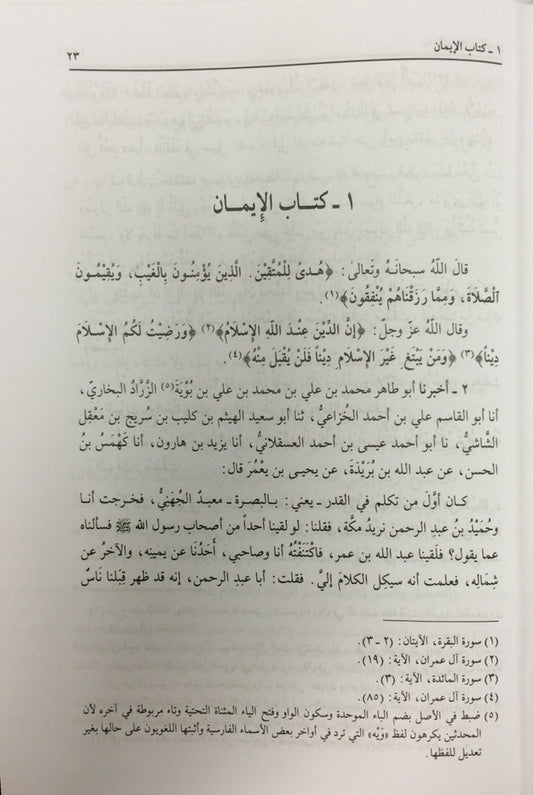 ١ ـ كتاب الإيمان
٢٣
١ ـ كتـاب الإِيمـان
قالَ اللَّهُ سبحانَـهُ وتَعالى: ﴿هُـدىً لِلْمُتَّقِيْنَ. الَّذِينَ يُؤْمِنُـونَ بِالْغَيْبِ، وَيُقِيْمُـونَ
الْصَّلاَةَ، وَمِمَّا رَزَقْنَاهُمْ يُنْفِقُونَ﴾(١).
وقال اللَّهُ عزّ وجلّ: ﴿إِنَّ الدِّيْنَ عِنْـدَ اللَّهِ الإِسْلاَمُ﴾(٢) ﴿وَرَضِيْتُ لَكُمُ الإِسْـلاَمَ
دِيْناً﴾(٣) ﴿وَمَنْ يَبْتَغِ غَيْرَ الإِسْلاَمِ دِيْناً فَلَنْ يُقْبَلَ مِنْهُ﴾(٤).
٢ ـ أخبرنا أبو طاهر محمد بن علي بن محمد بن علي بن بُوْيَةَ(٥) الزَّرَّادُ البخاريّ،
أنا أبو القاسم علي بن أحمد الخُزاعيُّ، ثنا أبو سعيد الهيثم بن كليب بن سُريج بن مَعْقِل
الشَّاشيُّ، نا أبو أحمد عيسى بن أحمد العسقلانيُّ، أنا يزيد بن هارون، أنا كَهْمَسُ بنُ
الحسن، عن عبد الله بن بُرَيْدَةَ، عن يحيى بن يَعْمُرَ قال:
كـان أوَّلَ من تكلم في القدر ـ يعني: بـالبصرة ـ معبـدٌ الجُهَنِيُّ، فخـرجت أنـا
وحُمَيْدُ بنُ عبدِ الرحمن نريدُ مكَّة، فقلنا: لو لقينا أحداً من أصحاب رسول الله ﷺ فسألناه
عما يقول؟ فلَقينا عبدَ الله بن عمر، فاكْتَنَفْتُهُ أنا وصاحبي، أَحَدُنَا عن يمينِه، والآخرُ عن
شِمالِه، فعلمت أنه سيكِل الكلامَ إليَّ. فقلت: أبا عبدِ الرحمن، إنه قد ظهر قِبَلنا نَاسٌ
(١) سورة البقرة، الآيتان: (٢ ـ ٣).
(٢) سورة آل عمران، الآية: (١٩).
(٣) سورة المائدة، الآية: (٣).
(٤) سورة آل عمران، الآية: (٨٥).
(٥) ضبط في الأصل بضم الباء الموحدة وسكون الواو وفتح الياء المثناة التحتية وتاء مربوطة في آخره لأن
المحدثين يكرهون لفظ «وَيْه» التي ترد في أواخر بعض الأسماء الفارسية وأثبتها اللغويون على حالها بغير
تعديل للفظها.